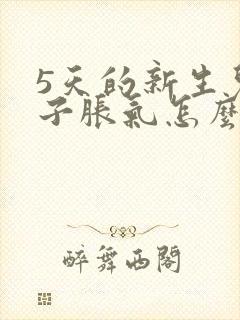 5天的新生
子脹氣怎麼
醉舞西閣